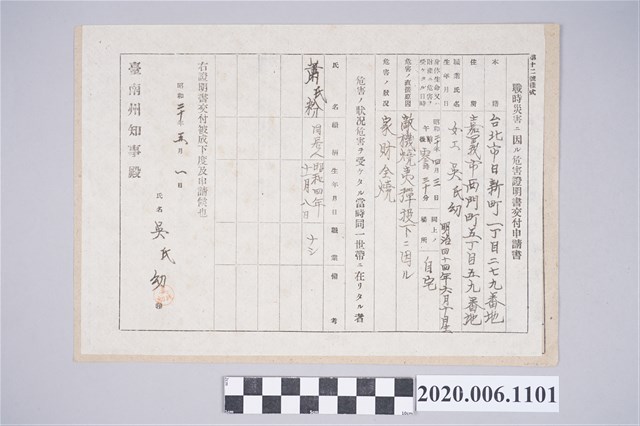 第十二號樣式
戰時災害ニ因ル危害證明書交付申請書
本籍 台北市日新町一丁目二七九番地
住所 嘉義市西門町五丁目五九番地
職業氏名 女工 吳氏幼
生年月日 明治四十四年六月十日生
身體生命又ハ財產ニ危害ヲ受ケタル日時 昭和二十年四月三日
午後 零時三十分
同上ノ場所 自宅
危害ノ直接原因 敵機燒夷彈投下ニ因ル
危害ノ狀況 家財全燒
危害ノ狀況危害ヲ受ケタル當時同一世帶ニ在リタル者
氏名 續柄 生年月日 職業 備考
蕭氏粉 同居人 昭和四年十一月八日 ナシ
右證明書交付被成下度及申請候也
昭和二十年五月一日
氏名 吳氏幼 印
臺南州知事殿
2020.006.1101